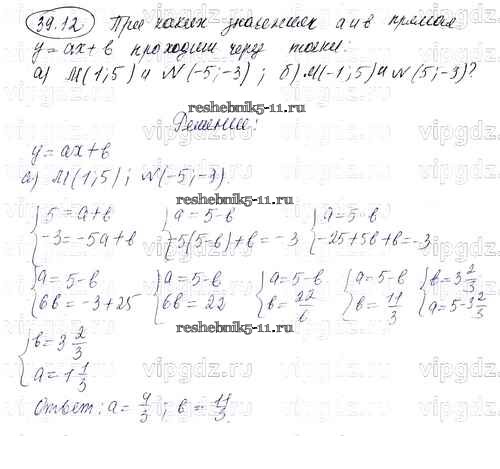 39.12 При каких значениях a и в прямая
y = ax + в проходит через точки:
а) M(1; 5) и N(-5; -3); б) M(-1; 5) и N(5; -3)?
reshebnik5-11.ru
Решение:
y = ax + в
а) M(1; 5); N(-5; -3)
reshebnik5-11.ru
{5 = a + в {a = 5 - в {a = 5 - в
{-3 = -5a + в {-5(5-в) + в = -3 {-25 + 5в + в = -3
{a = 5 - в {a = 5 - в {a = 5 - в {a = 5 - в {в = 3 2/3
{6в = -3 + 25 {6в = 22 {в = 22/6 {в = 11/3 {a = 5 - 3 2/3
reshebnik5-11.ru
{в = 3 2/3
{a = 1 1/3
Ответ: a = 4/3; в = 11/3.
vipgdz.ru